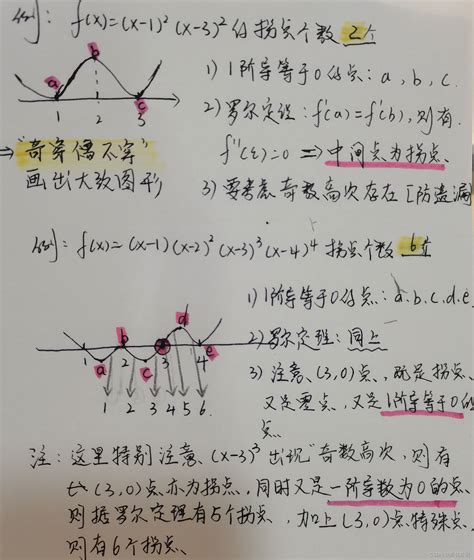 例: f(x)=(x-1)²(x-3)² 的拐点个数 2个
a b c
1 2 3
1) 1阶导等于0的点: a, b, c.
2) 罗尔定理: f'(a)=f'(b), 则有.
f''(ξ)=0 ⇒ 中间点为拐点.
→ "奇穿偶不穿"
画出大致图形
3) 要考虑奇数高次存在 [防遗漏
例: f(x)=(x-1)(x-2)²(x-3)³(x-4)⁴ 拐点个数 6个
1) 1阶导等于0的点: a.b.c.d.e
a b c d e
1 2 3 4
1 2 3 4 5 6.
2) 罗尔定理: 同上
3) 注意 (3,0)点, 既是拐点,
又是零点, 又是1阶导等于0的
点
注: 这里特别注意 (x-3)³ 出现"奇数高次, 则有
(3,0)点亦为拐点, 同时又是一阶导数为0的点
则据罗尔定理有5个拐点, 加上(3,0)点特殊点,
则有6个拐点、